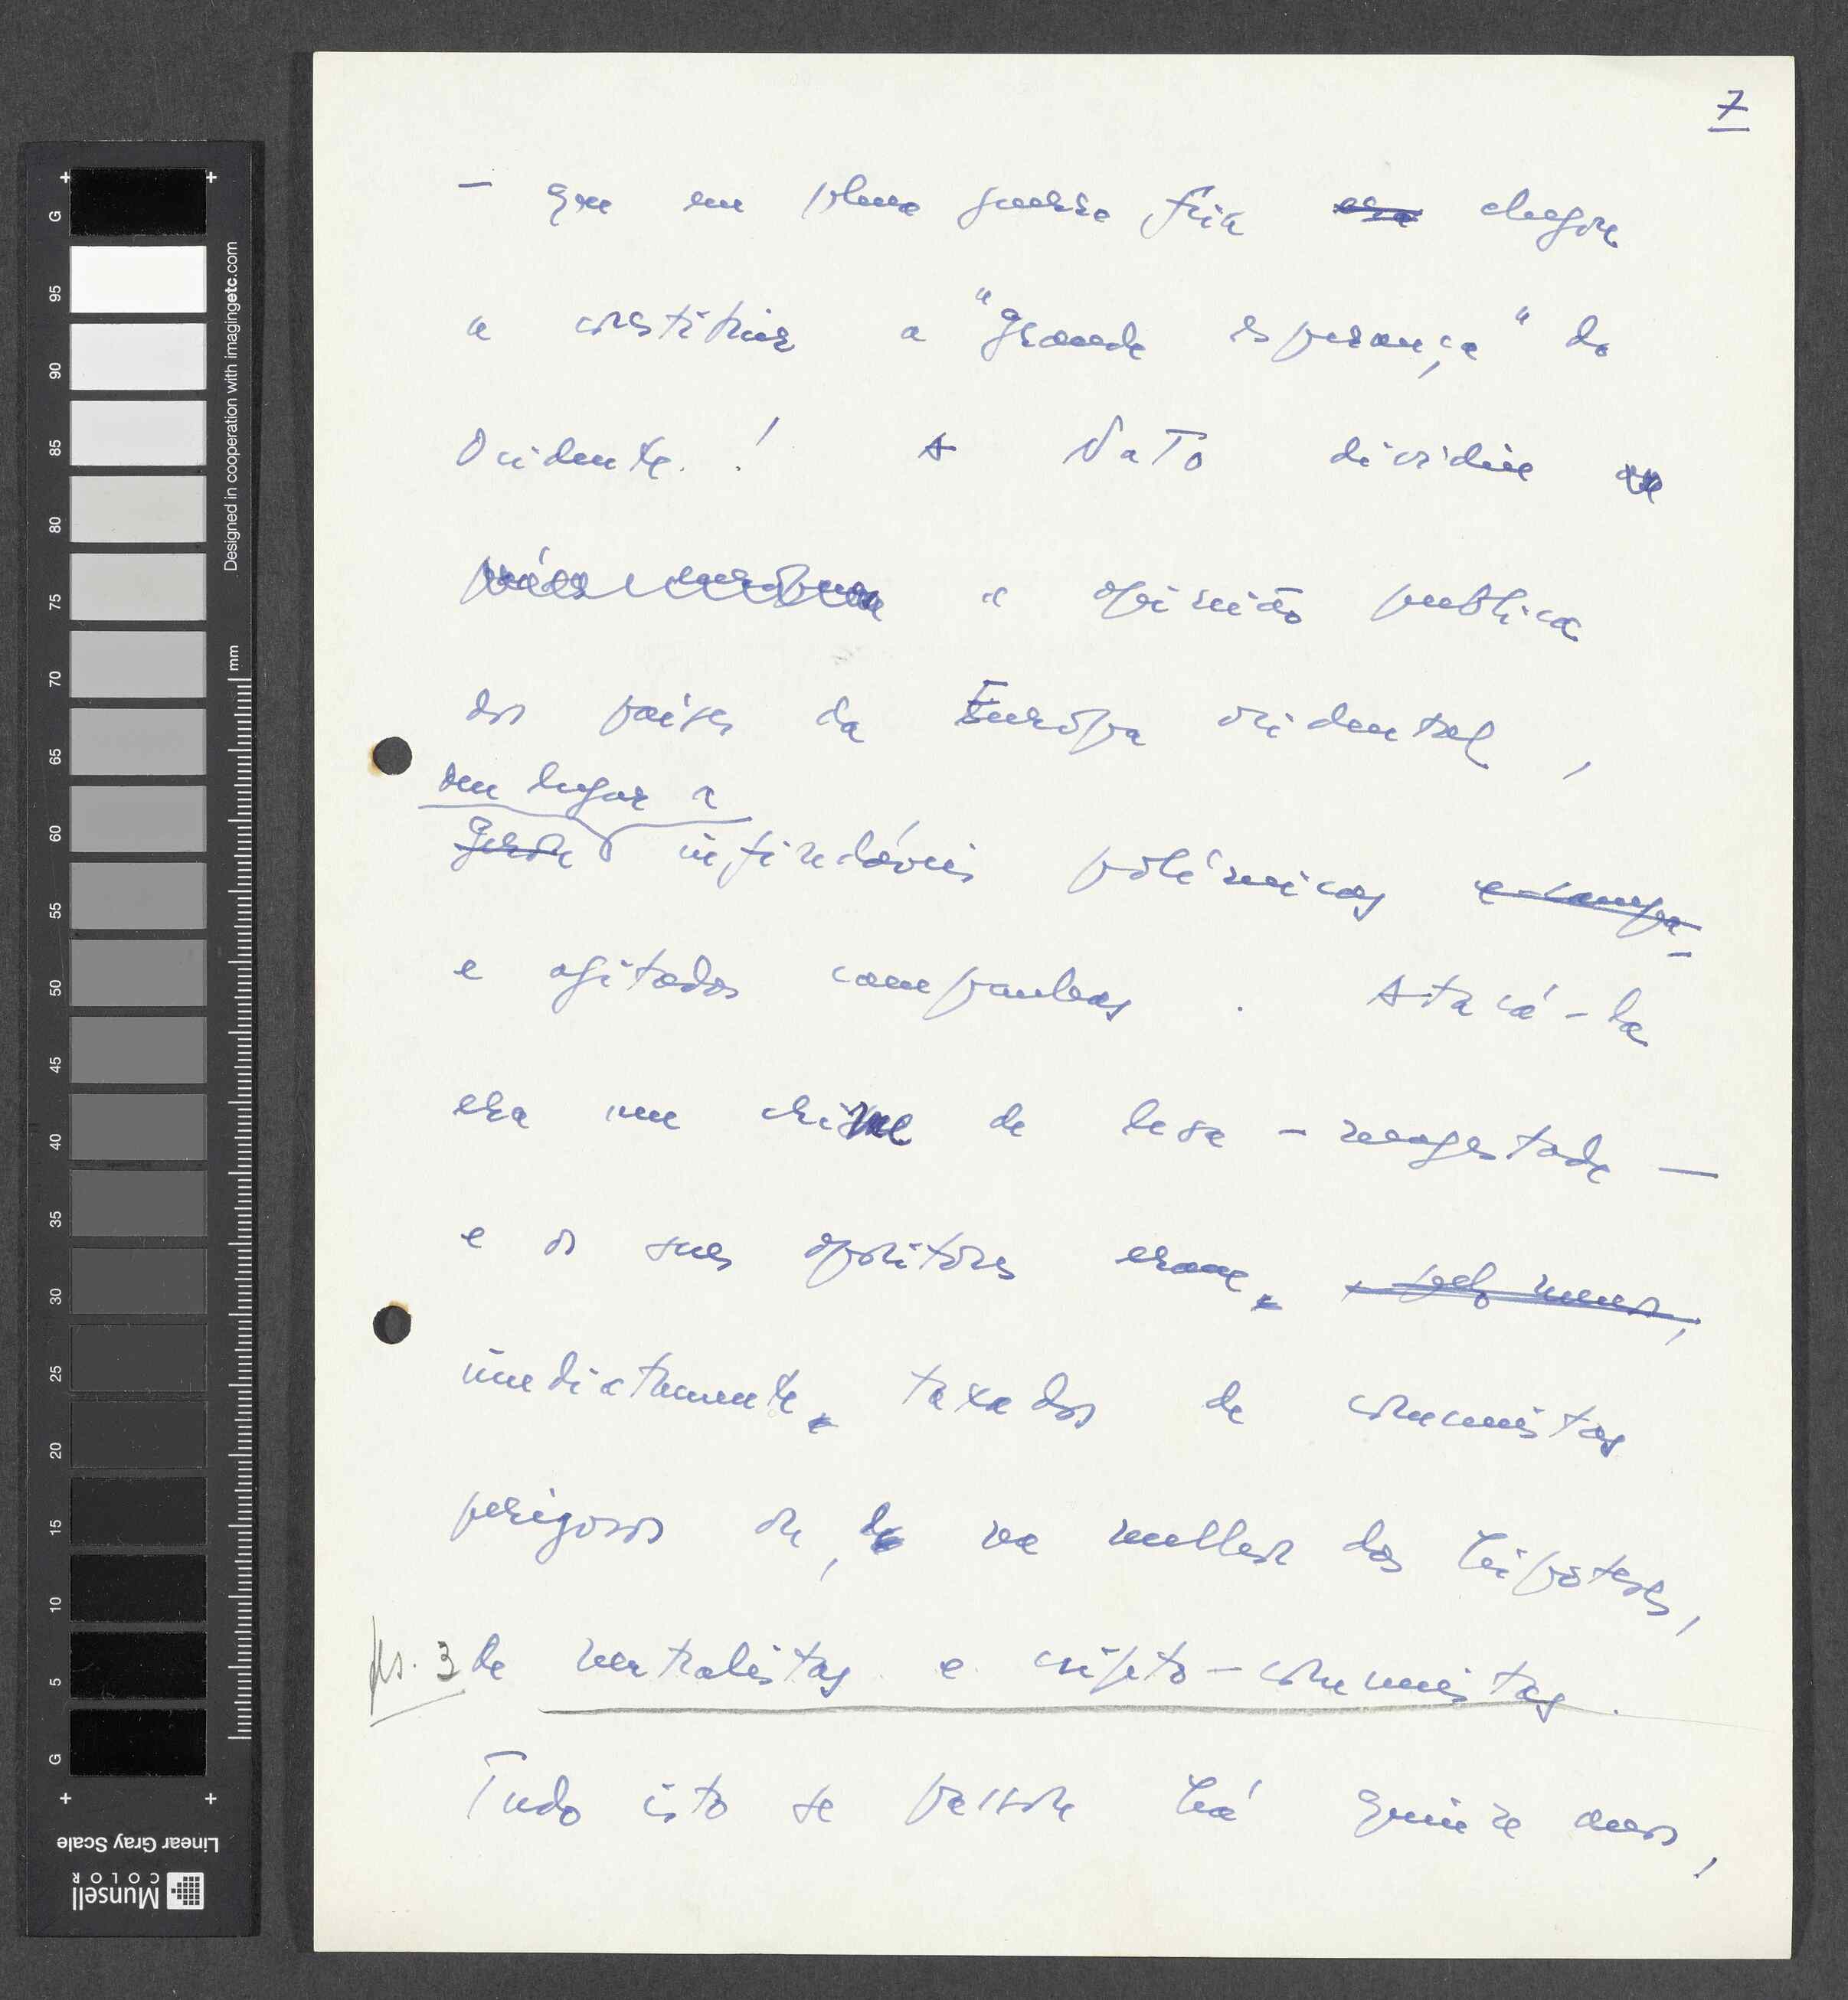 7
— que em plena guerra fria ~~era~~ chegou
a constituir a "grande esperança" do
Ocidente.! A NATO dividiu
a opinião publica
dos paises da Európa ocidental,
deu lugar a
~~gerou~~ infindáveis polémicas ~~e campa-~~
e agitadas campanhas. Atacá-la
era um crime de lesa-magestade —
e os seus opositores eram, ~~, pelo menos,~~
imediatamente, taxados de comunistas
perigosos ou, na melhor das hipoteses,
fls. 3 de neutralistas e cripto-comunistas.
Tudo isto se passou há quinze anos,
G 95 90 85 80 75 70 65 60 55 50 45 40 35 30 25 20 15 10 5 G
mm
Designed in cooperation with imagingetc.com
Linear Gray Scale
Munsell
COLOR